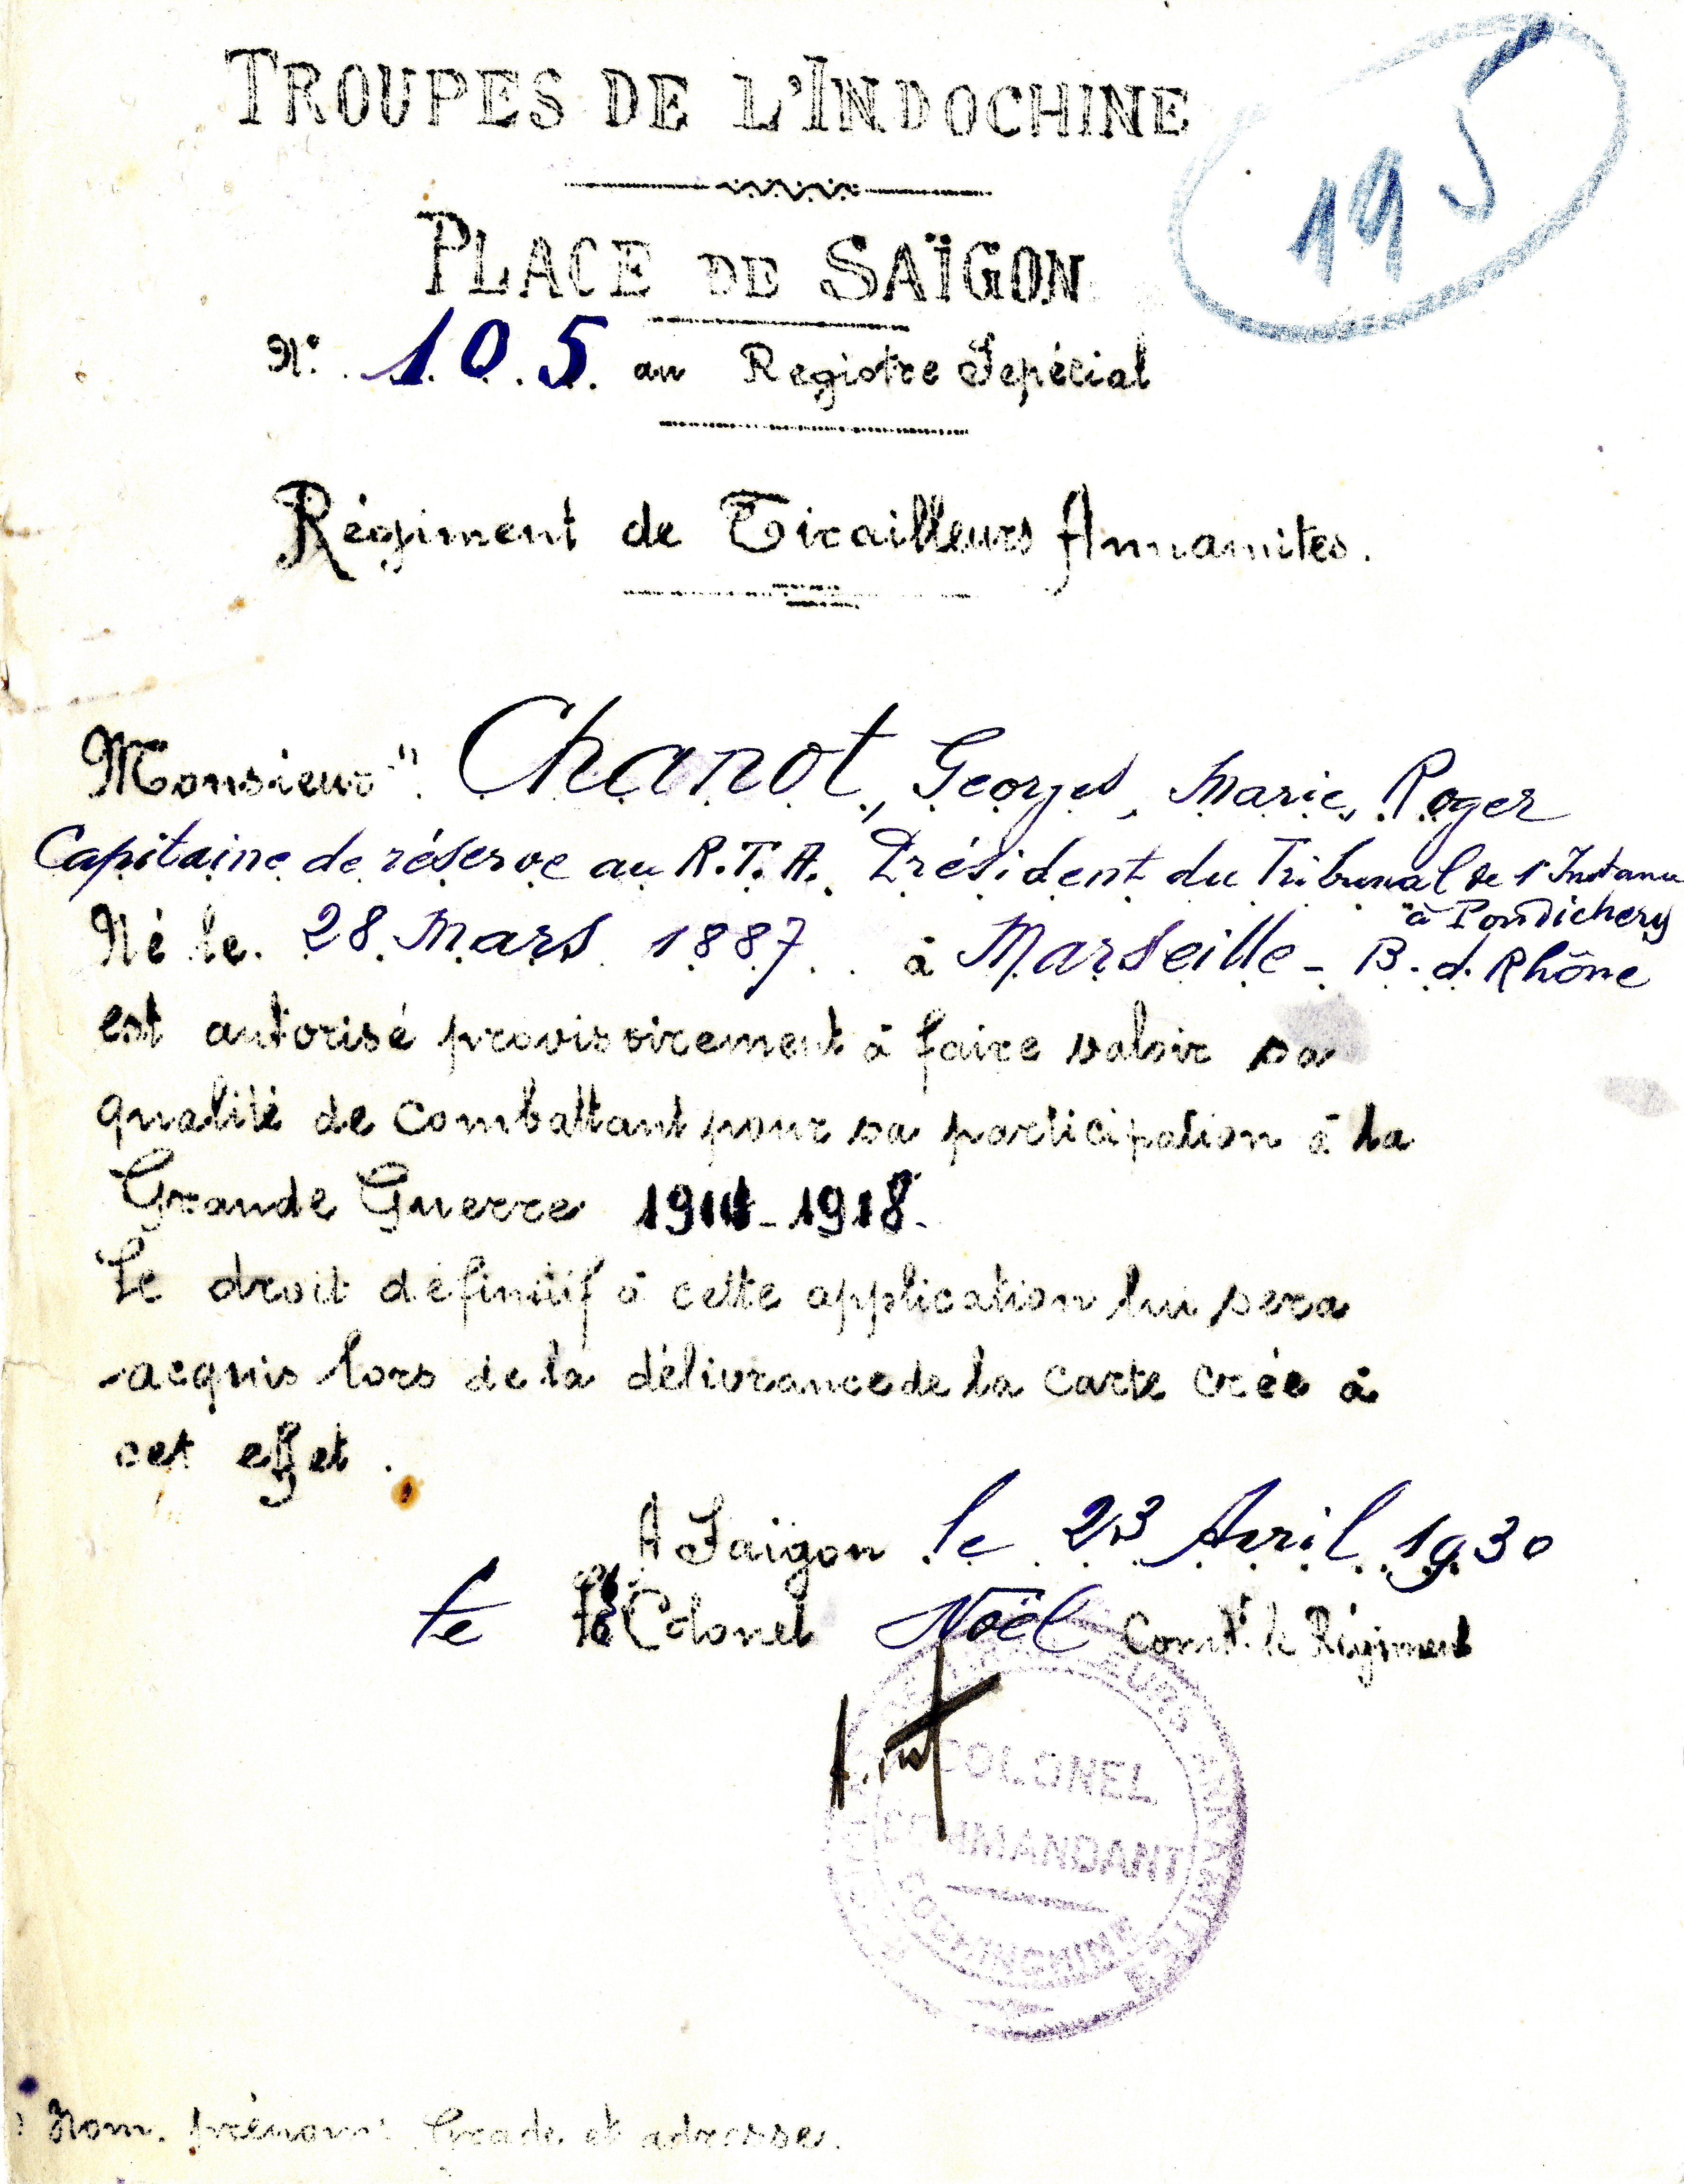 TROUPES DE L'INDOCHINE
195
PLACE DE SAÏGON
N° 105 au Registre Sepécial
Régiment de Tirailleurs Annamites.
Monsieur 1) Chanot, Georges, Marie, Roger
Capitaine de réserve au R.T.A. Président du Tribunal de 1e Instance
à Pondichery
Né le. 28 Mars 1887 à Marseille - B. d. Rhône
est autorisé provissoirement à faire valoir sa
qualité de combattant pour sa participation à la
Grande Guerre 1914-1918-
Le droit définitif à cette application lui sera
acquis lors de la délivrance de la carte crée à
cet effet.
A Saïgon le 23 Avril 1930
Le Colonel Noël Comdt. le Régiment
TIRAILLEURS ANNAMITES
COLONEL
COMMANDANT
COCHINCHINE
) Nom, prénoms Grade et adresse.